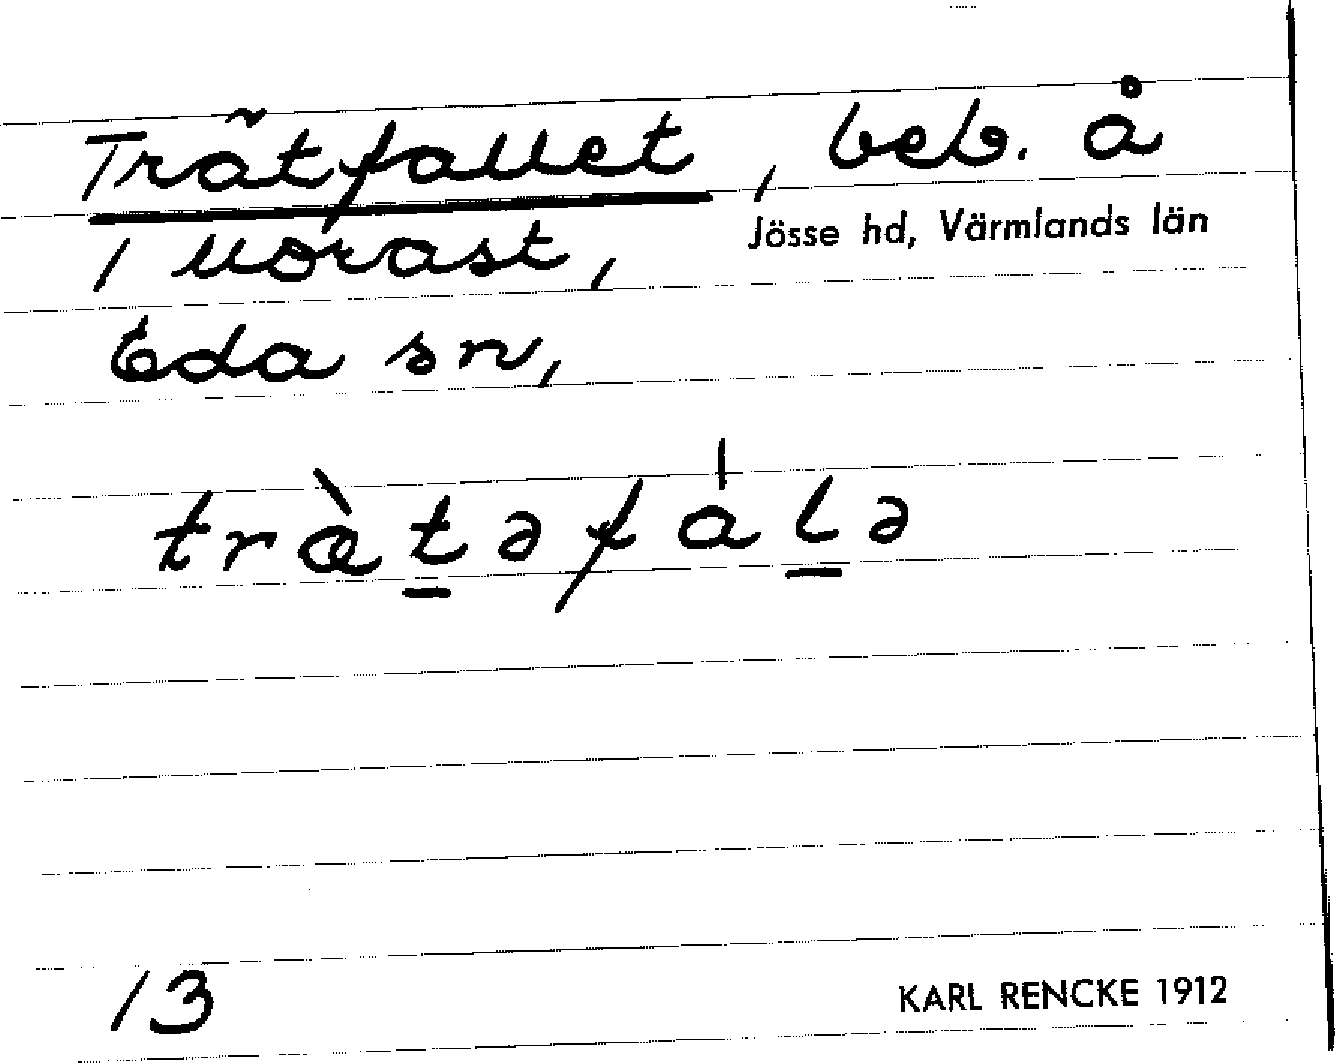 Trätfallet, beb. å
Jösse hd, Värmlands län
1 Morast,
Eda sn,
træ̀t̲əfa̍l̲ə
13
KARL RENCKE 1912